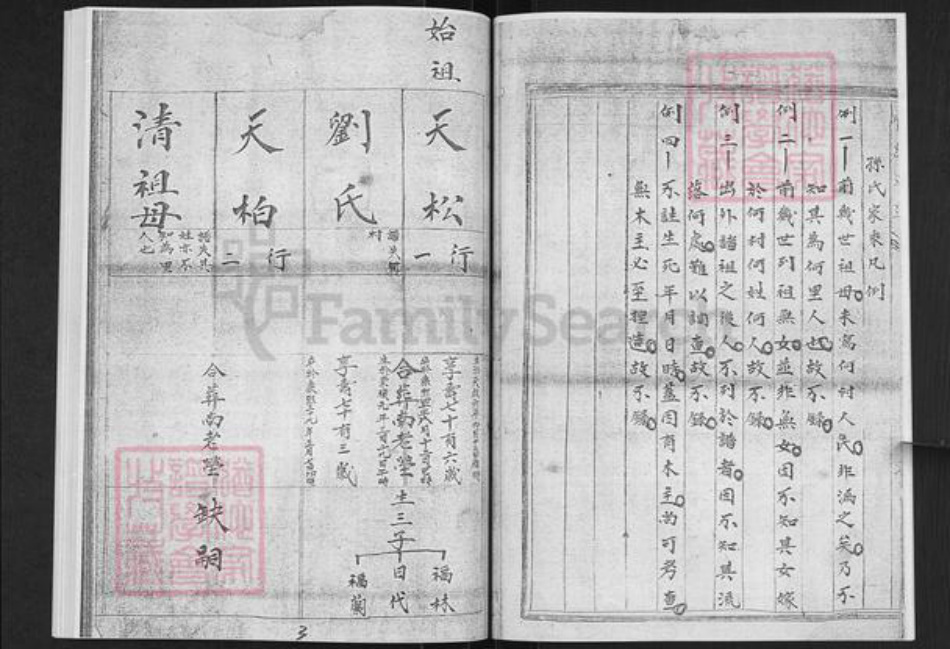 孫氏家乘凡例
例一｜前幾世祖母未寫何村人民非漏之矣乃不
知其為何里人也故不錄
例二｜前幾世列祖無女並非無女因不知其女嫁
於何村何姓何人故不錄
例三｜出外諸祖之後人不列於譜者因不知其流
落何處難以調查故不錄
例四｜不註生死年月日時蓋因有木主尚可考查
無木主必至捏造故不錄
始祖
天松
一行
劉氏
譜失何村
天柏
二行
清祖母
譜失其姓亦不知為里人也
享壽七十有六歲
合葬南老塋
生三子
福林
日代
福蘭
享壽七十有三歲
合葬南老塋
缺嗣
3
FamilySearch